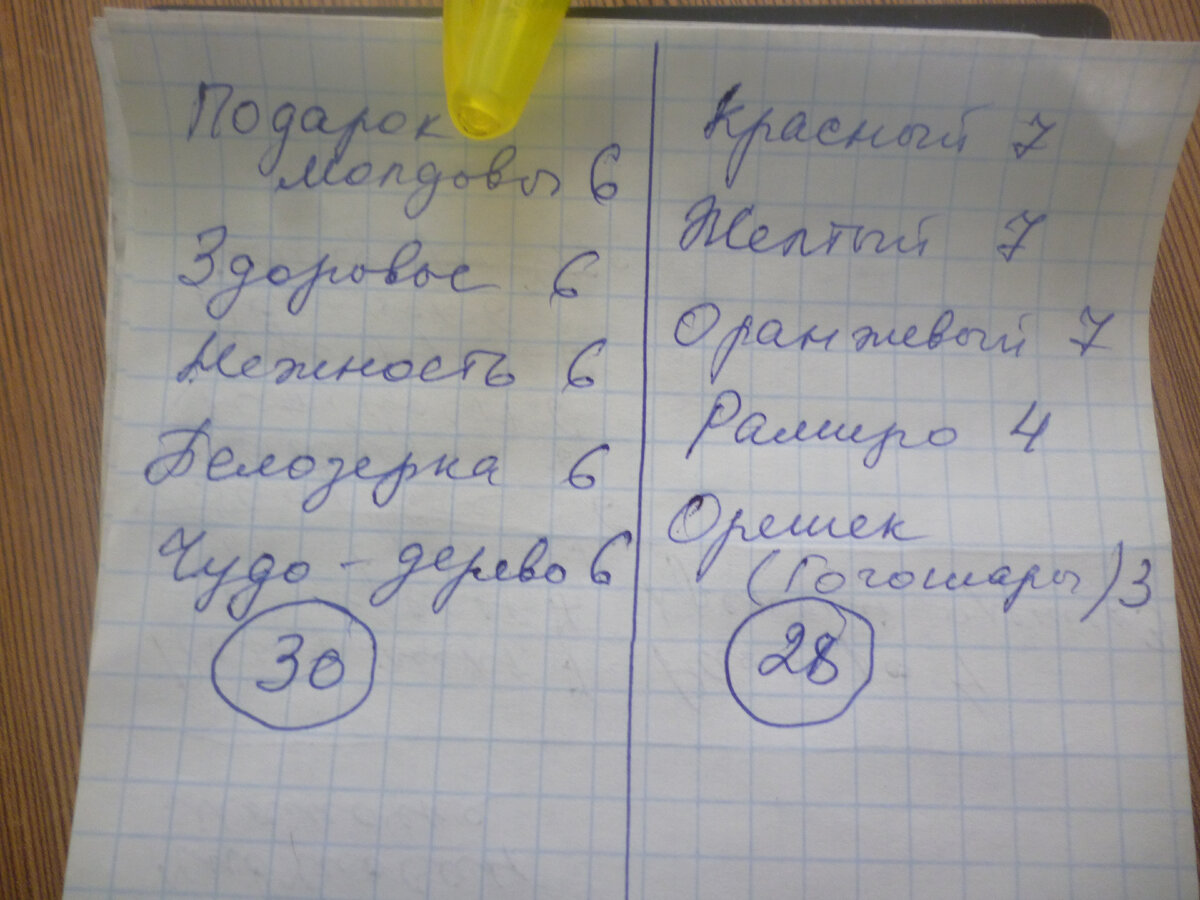 Подарок
Молдовы 6
Здоровье 6
Нежность 6
Белозерка 6
Чудо - дерево 6
30
Красный 7
Желтый 7
Оранжевый 7
Рамиро 4
Орешек
(Гогошары) 3
28